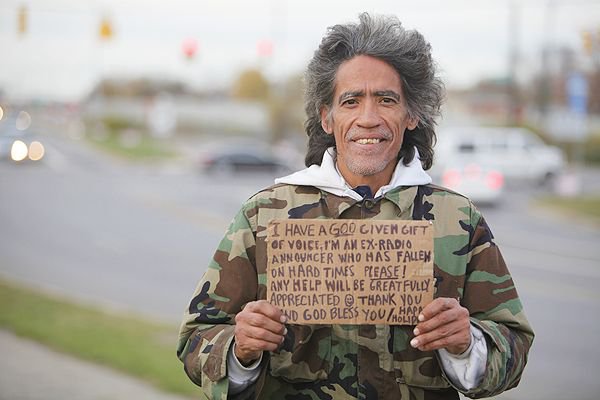 I HAVE A GOD GIVEN GIFT
OF VOICE, I'M AN EX-RADIO
ANNOUNCER WHO HAS FALLEN
ON HARD TIMES PLEASE!
ANY HELP WILL BE GREATFULLY
APPRECIATED ☺ THANK YOU
AND GOD BLESS YOU! HAPPY
HOLIDAY